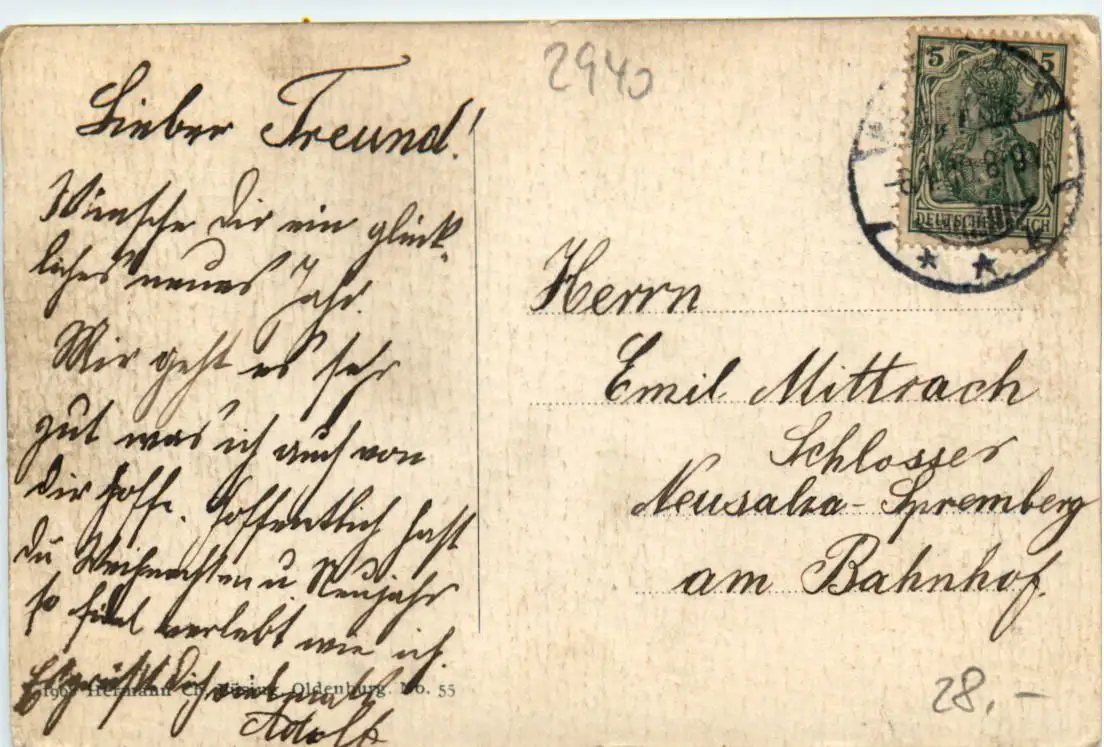 2940
5 5
DEUTSCHES REICH
Lieber Freund!
Wünsche dir ein glück-
liches neues Jahr.
Mir geht es sehr
gut was ich auch von
dir hoffe. Hoffentlich hast
du Weihnachten u. Neujahr
so fidel verlebt wie ich.
Es grüßt dich
Adolf
Herrn
Emil Mittrach
Schlosser
Neusalza-Spremberg
am Bahnhof.
Hermann Oldenburg. No. 55
28.-